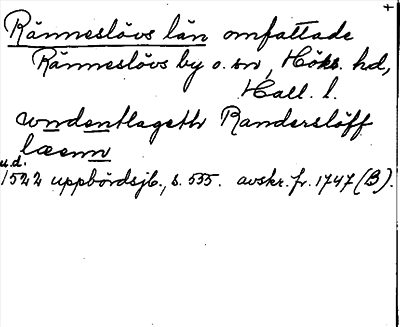 +
Ränneslövs län omfattade
Ränneslövs by o. sn, Höks hd,
Hall. l.
wndentlageth Randerslöff
læenn
u.d.
1522 uppbördsjb., s. 535. avskr. fr. 1747 (B).